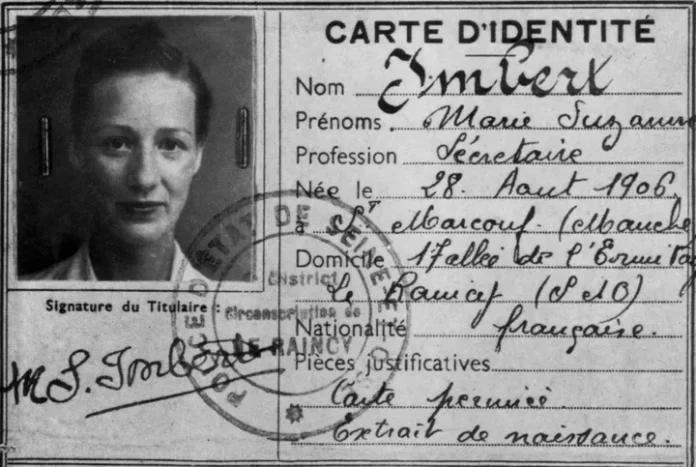 CARTE D'IDENTITÉ
Nom Imbert
Prénoms Marie Suzanne
Profession Sécretaire
Née le 28 Aout 1906
à St Marcouf (Manche)
Domicile 17 allée de l'Ermitag
Le Raincy (S&O)
Nationalité française.
Pièces justificatives
Carte périmée.
Extrait de naissance.
Signature du Titulaire :
M S. Imbert
ETAT DE SEINE-E
District
Circonscription de
LE RAINCY